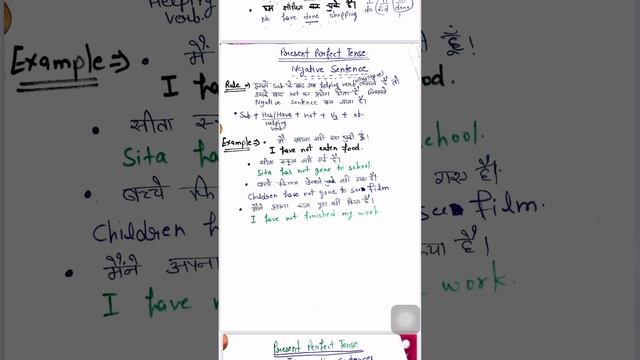 हम शॉपिंग कर चुके हैं।
We have done shopping
do did done
Present Perfect Tense
Negative Sentence
Rule → इसमें Sub के बाद जब helping verb लगाते हैं तो
उसके बाद not का प्रयोग होता है जिससे
Ngative Sentence बन जाता है।
• Sub + Has/Have + not + V3 + ob.
Helping verb
Example:→ • मैं खाना नहीं खा चुकी हूँ।
I have not eaten food.
• सीता स्कूल नहीं गई है।
Sita has not gone to school.
• बच्चे फिल्म देखने नहीं गए हैं।
Children have not gone to see film.
• मैंने अपना काम पूरा नहीं किया है।
I have not finished my work.
Present Perfect Tense
Helping verb
Example:→ • मैं
I have
सीता स्
Sita has
• बच्चे फि
Children h
• मैंने अपना
I have no
हूँ।
chool.
गए हैं।
see film.
है।
work.